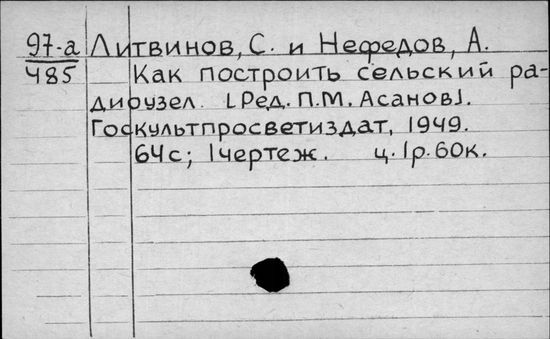 97-а Литвинов, С. и Нефедов, А.
485 Как построить сельский ра-
диоузел. [Ред. П.М. Асанов].
Госкультпросветиздат, 1949.
64с; 1чертеж. ц. 1р. 60к.